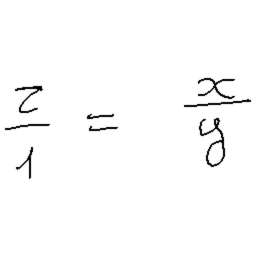 z/1 = x/y